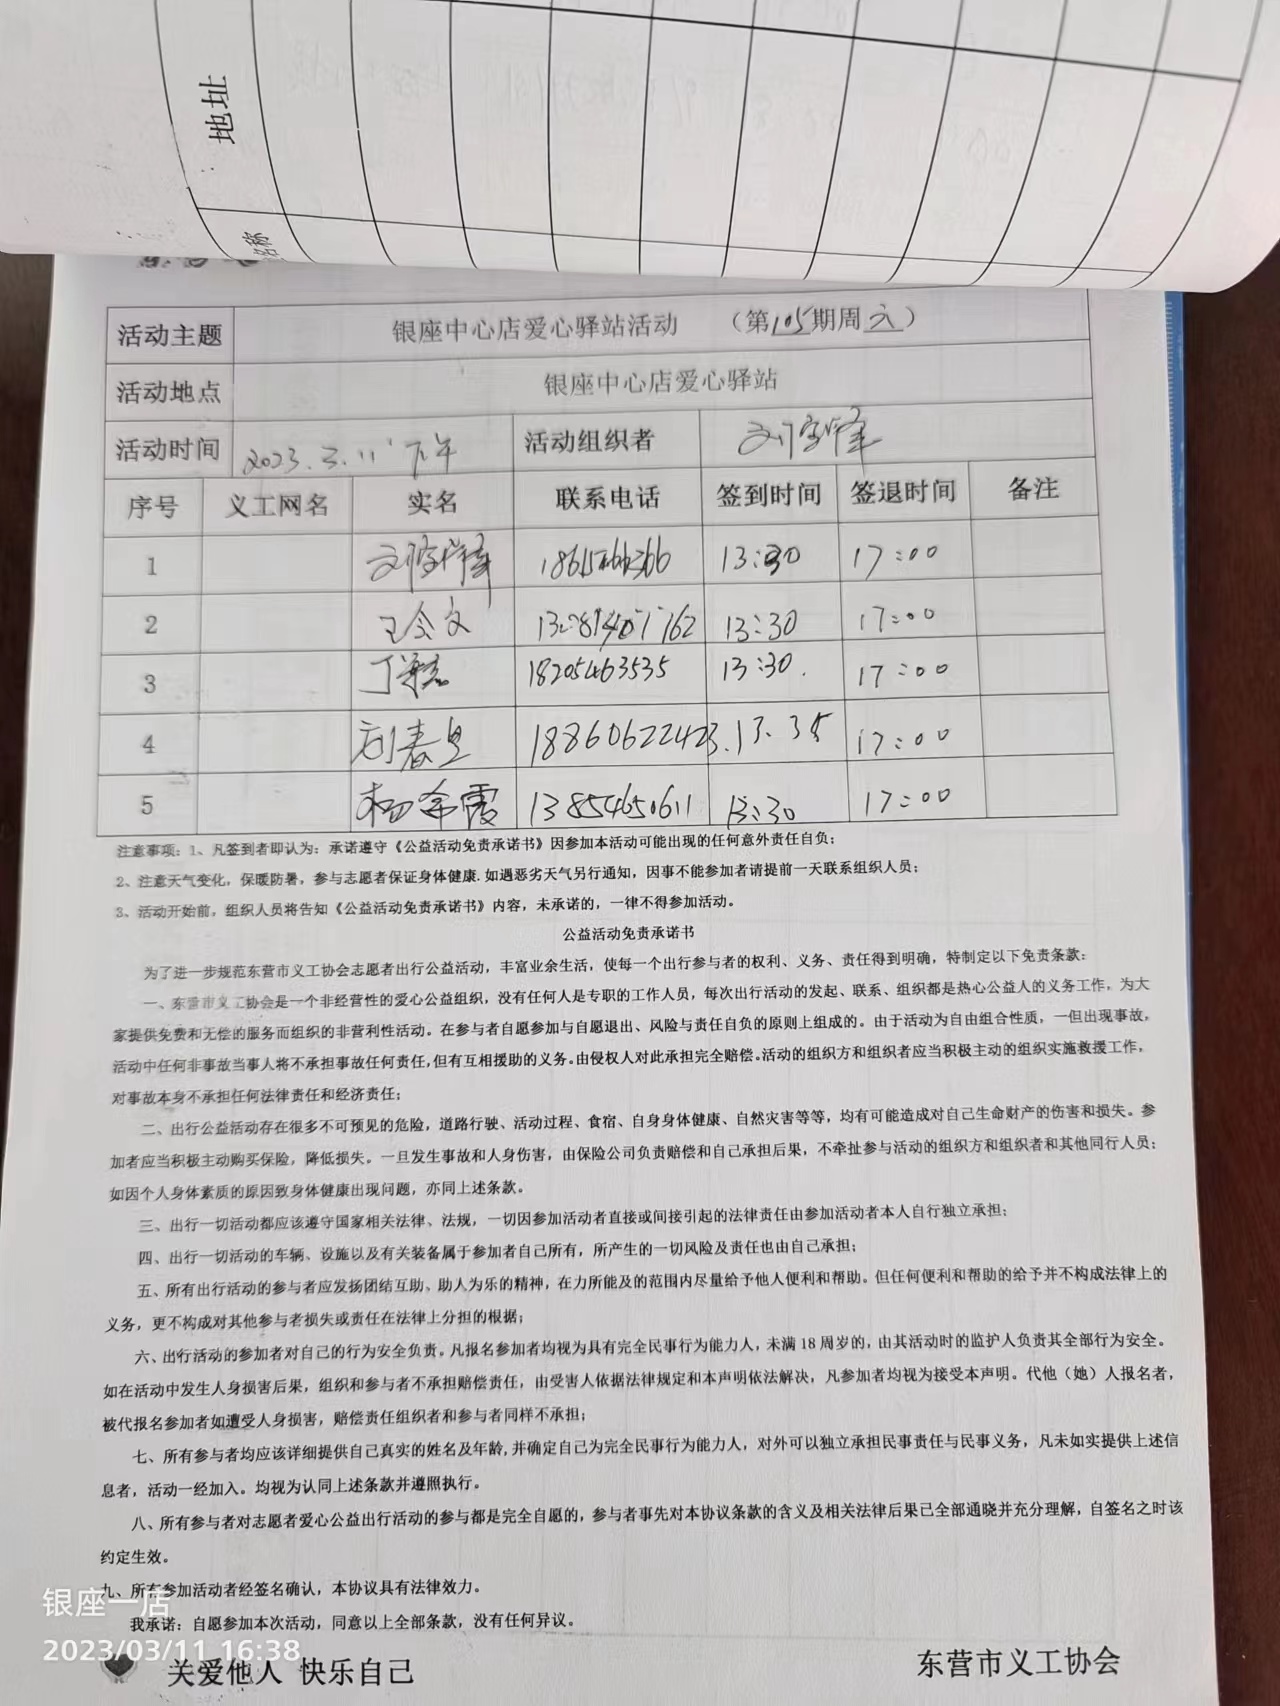 地址
名称
活动主题 银座中心店爱心驿站活动 （第105期周六）
活动地点 银座中心店爱心驿站
活动时间 2023.3.11 下午 活动组织者
序号 义工网名 实名 联系电话 签到时间 签退时间 备注
1 13:30 17:00
2 王会文 13:30 17:00
3 18205463535 13:30. 17:00
4 刘春 18860622423. 13.35 17:00
5 杨 霞 13854650611 13:30 17:00
注意事项：1、凡签到者即认为：承诺遵守《公益活动免责承诺书》因参加本活动可能出现的任何意外责任自负；
2、注意天气变化，保暖防暑，参与志愿者保证身体健康.如遇恶劣天气另行通知，因事不能参加者请提前一天联系组织人员；
3、活动开始前，组织人员将告知《公益活动免责承诺书》内容，未承诺的，一律不得参加活动。
公益活动免责承诺书
为了进一步规范东营市义工协会志愿者出行公益活动，丰富业余生活，使每一个出行参与者的权利、义务、责任得到明确，特制定以下免责条款：
一、东营市义工协会是一个非经营性的爱心公益组织，没有任何人是专职的工作人员，每次出行活动的发起、联系、组织都是热心公益人的义务工作，为大
家提供免费和无偿的服务而组织的非营利性活动。在参与者自愿参加与自愿退出、风险与责任自负的原则上组成的。由于活动为自由组合性质，一但出现事故，
活动中任何非事故当事人将不承担事故任何责任,但有互相援助的义务。由侵权人对此承担完全赔偿。活动的组织方和组织者应当积极主动的组织实施救援工作，
对事故本身不承担任何法律责任和经济责任；
二、出行公益活动存在很多不可预见的危险，道路行驶、活动过程、食宿、自身身体健康、自然灾害等等，均有可能造成对自己生命财产的伤害和损失。参
加者应当积极主动购买保险，降低损失。一旦发生事故和人身伤害，由保险公司负责赔偿和自己承担后果，不牵扯参与活动的组织方和组织者和其他同行人员；
如因个人身体素质的原因致身体健康出现问题，亦同上述条款。
三、出行一切活动都应该遵守国家相关法律、法规，一切因参加活动者直接或间接引起的法律责任由参加活动者本人自行独立承担；
四、出行一切活动的车辆、设施以及有关装备属于参加者自己所有，所产生的一切风险及责任也由自己承担；
五、所有出行活动的参与者应发扬团结互助、助人为乐的精神，在力所能及的范围内尽量给予他人便利和帮助。但任何便利和帮助的给予并不构成法律上的
义务，更不构成对其他参与者损失或责任在法律上分担的根据；
六、出行活动的参加者对自己的行为安全负责。凡报名参加者均视为具有完全民事行为能力人，未满 18 周岁的，由其活动时的监护人负责其全部行为安全。
如在活动中发生人身损害后果，组织和参与者不承担赔偿责任，由受害人依据法律规定和本声明依法解决，凡参加者均视为接受本声明。代他（她）人报名者，
被代报名参加者如遭受人身损害，赔偿责任组织者和参与者同样不承担；
七、所有参与者均应该详细提供自己真实的姓名及年龄,并确定自己为完全民事行为能力人，对外可以独立承担民事责任与民事义务，凡未如实提供上述信
息者，活动一经加入。均视为认同上述条款并遵照执行。
八、所有参与者对志愿者爱心公益出行活动的参与都是完全自愿的，参与者事先对本协议条款的含义及相关法律后果已全部通晓并充分理解，自签名之时该
约定生效。
九、所有参加活动者经签名确认，本协议具有法律效力。
我承诺：自愿参加本次活动，同意以上全部条款，没有任何异议。
银座一店
2023/03/11 16:38
关爱他人 快乐自己 东营市义工协会